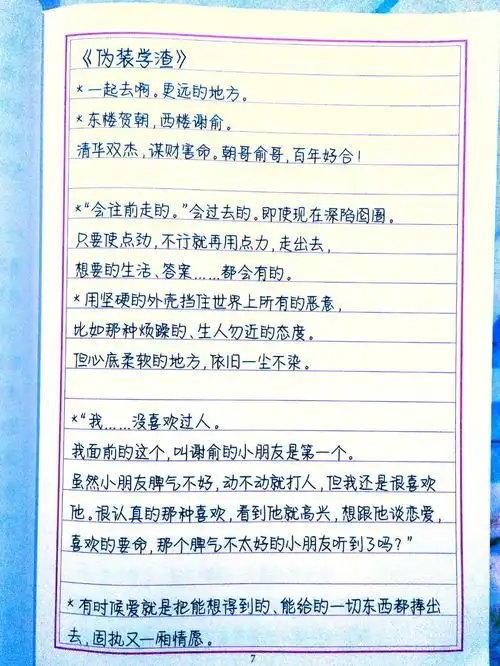 《伪装学渣》
*一起去啊。更远的地方。
*东楼贺朝,西楼谢俞。
清华双杰,谋财害命。朝哥俞哥,百年好合!
*“会往前走的。”会过去的。即使现在深陷囹圄。
只要使点劲,不行就再用点力,走出去,
想要的生活、答案……都会有的。
*用坚硬的外壳挡住世界上所有的恶意,
比如那种烦躁的、生人勿近的态度。
但心底柔软的地方,依旧一尘不染。
*“我……没喜欢过人。
我面前的这个,叫谢俞的小朋友是第一个。
虽然小朋友脾气不好,动不动就打人,但我还是很喜欢
他。很认真的那种喜欢,看到他就高兴,想跟他谈恋爱,
喜欢的要命,那个脾气不太好的小朋友听到了吗?”
*有时候爱就是把能想得到的、能给的一切东西都捧出
去,固执又一厢情愿。
7